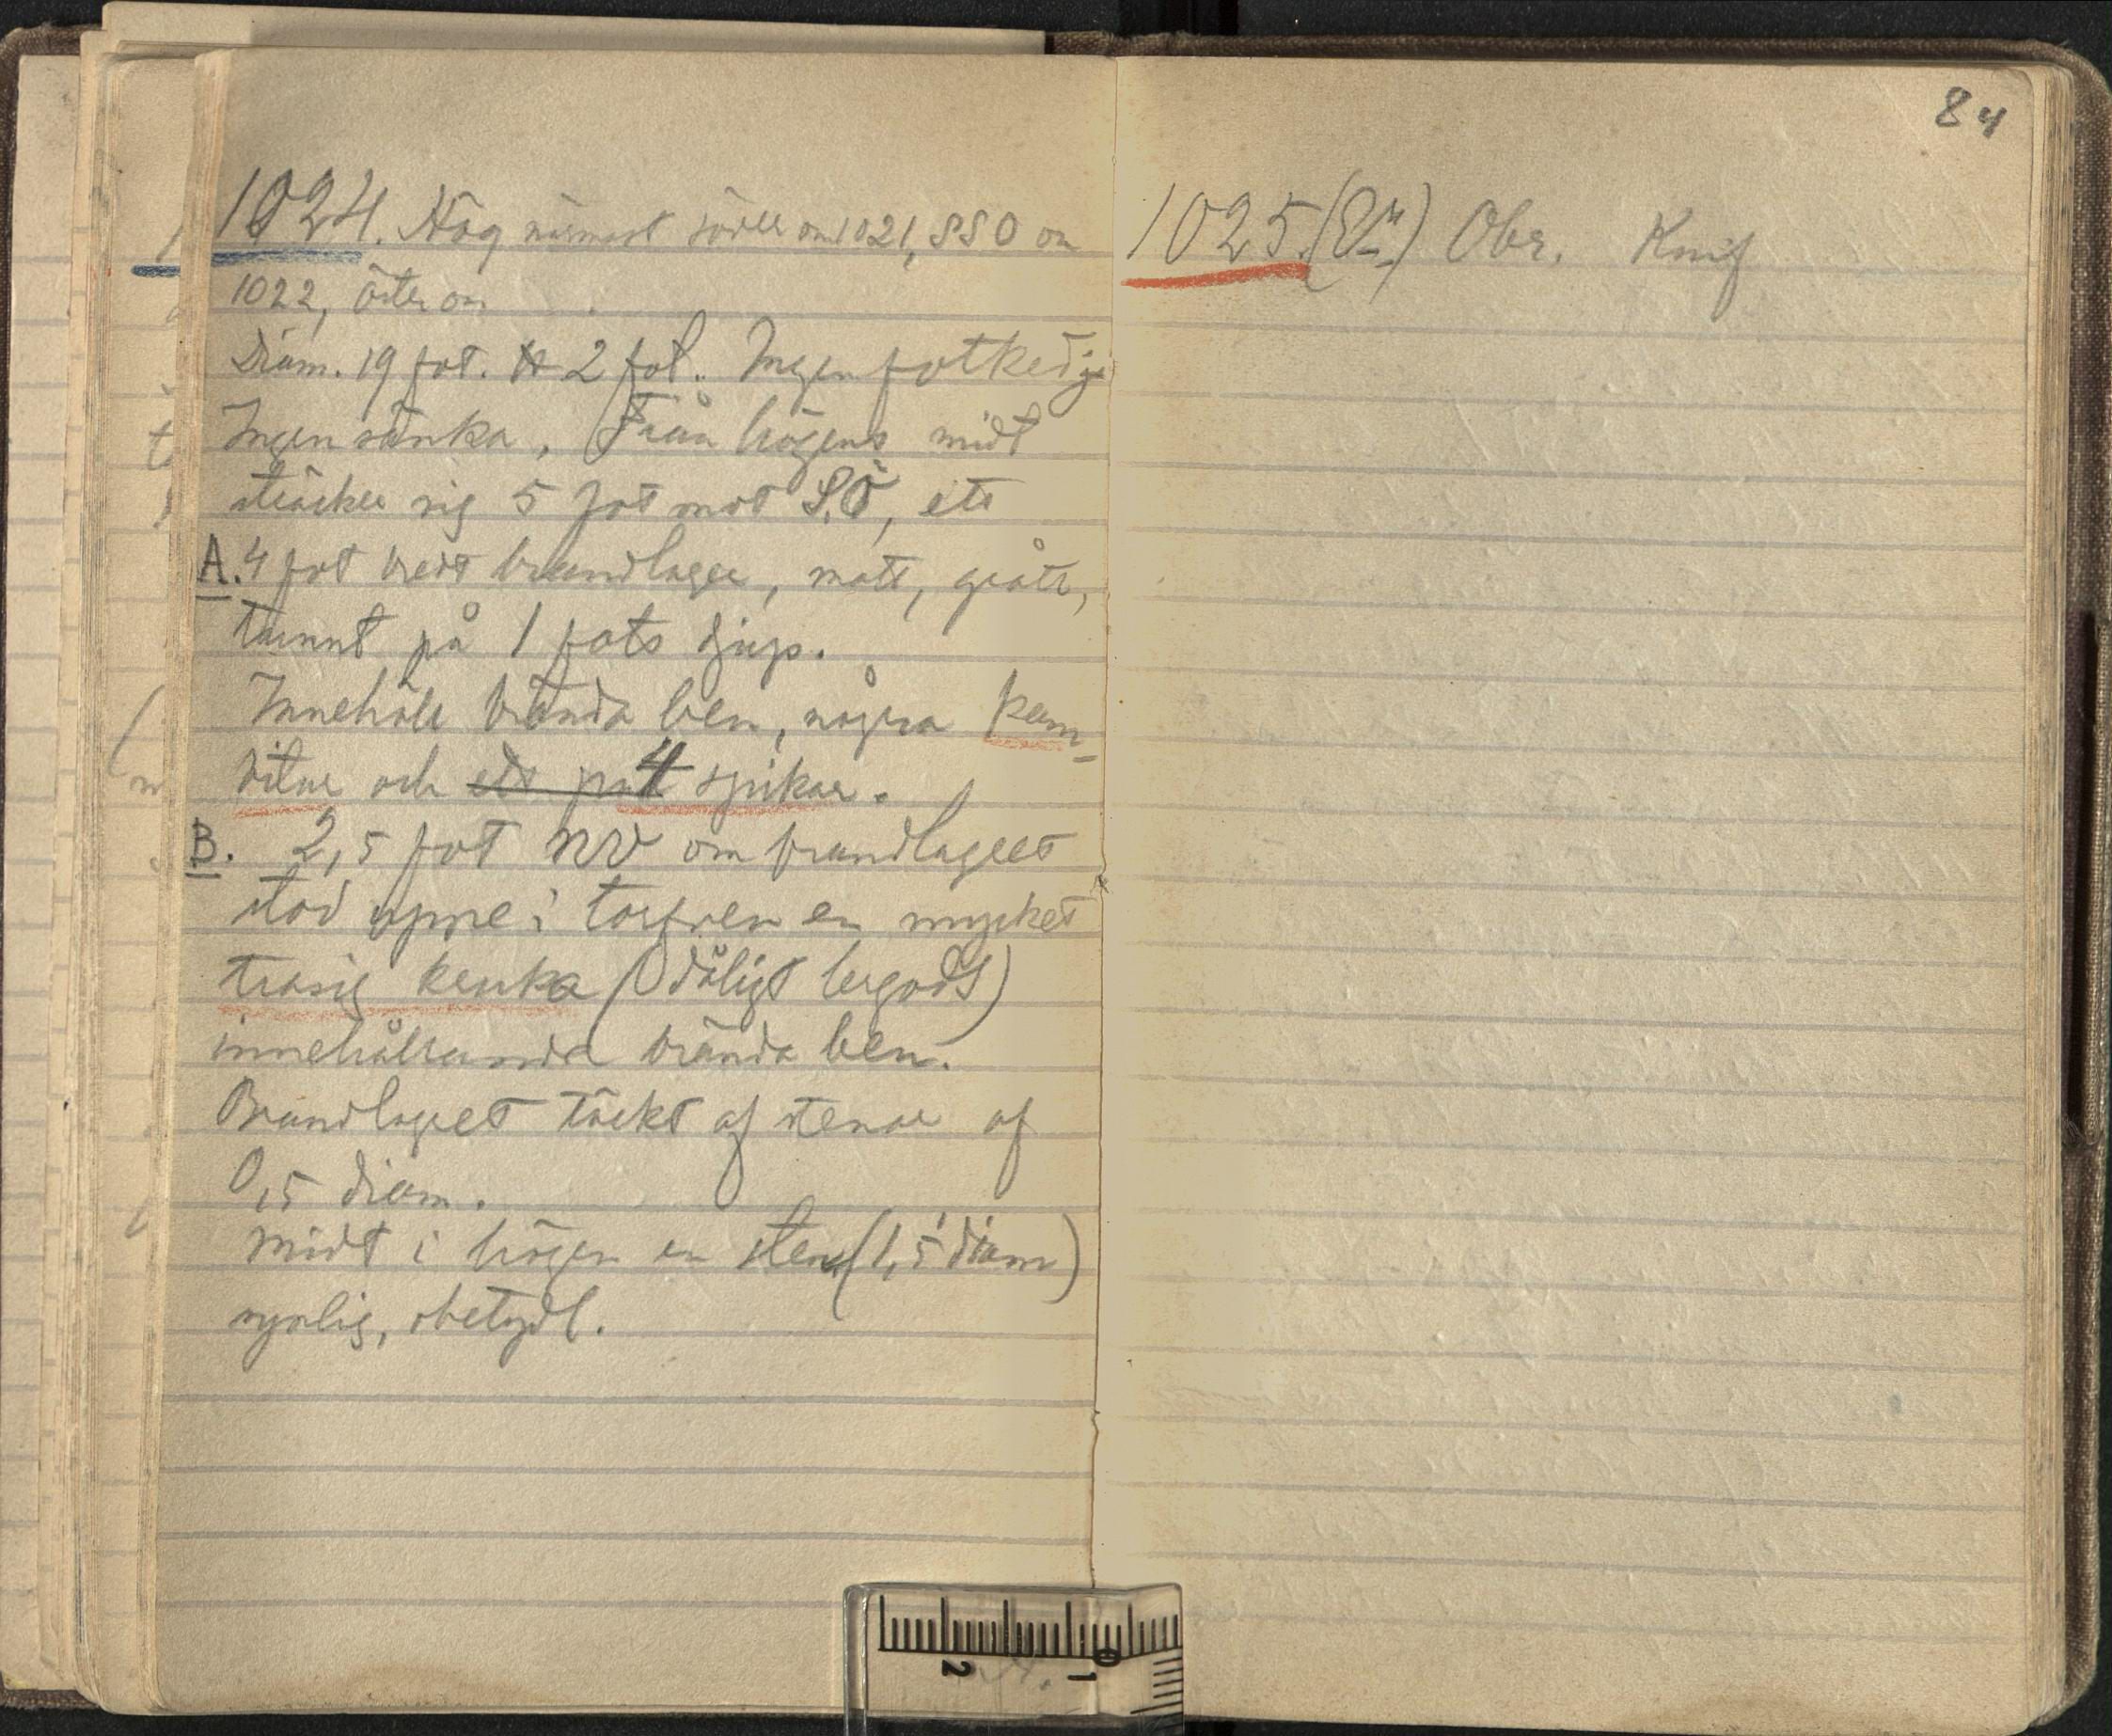 1024. Hög närmast söder om 1021, SSO om
1022, öster om
Diam. 19 fot. H 2 fot. Ingen fotkedja
Ingen sänka. Från högens midt
sträcker sig 5 fot mot S.Ö, ett
A. 4 fot bredt brandlager, matt, grått,
tunnt på 1 fots djup.
Innehöll brända ben, några kam-
bitar och ett par 4 spikar.
B. 2,5 fot NV om brandlagret
stod uppe i torfven en mycket
trasig kruka (dåligt lergods)
innehållande brända ben.
Brandlagret täckt af stenar af
0,5 diam.
Midt i högen en sten (1,5' diam)
synlig, obetydl.
84
1025. Obr. Knif
2 1 0